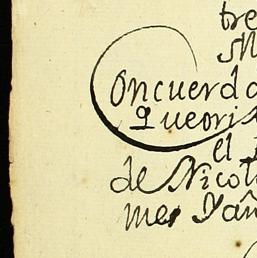 tre
M
Concuerda
q ueoris
el
de Nicol
mes Yañ